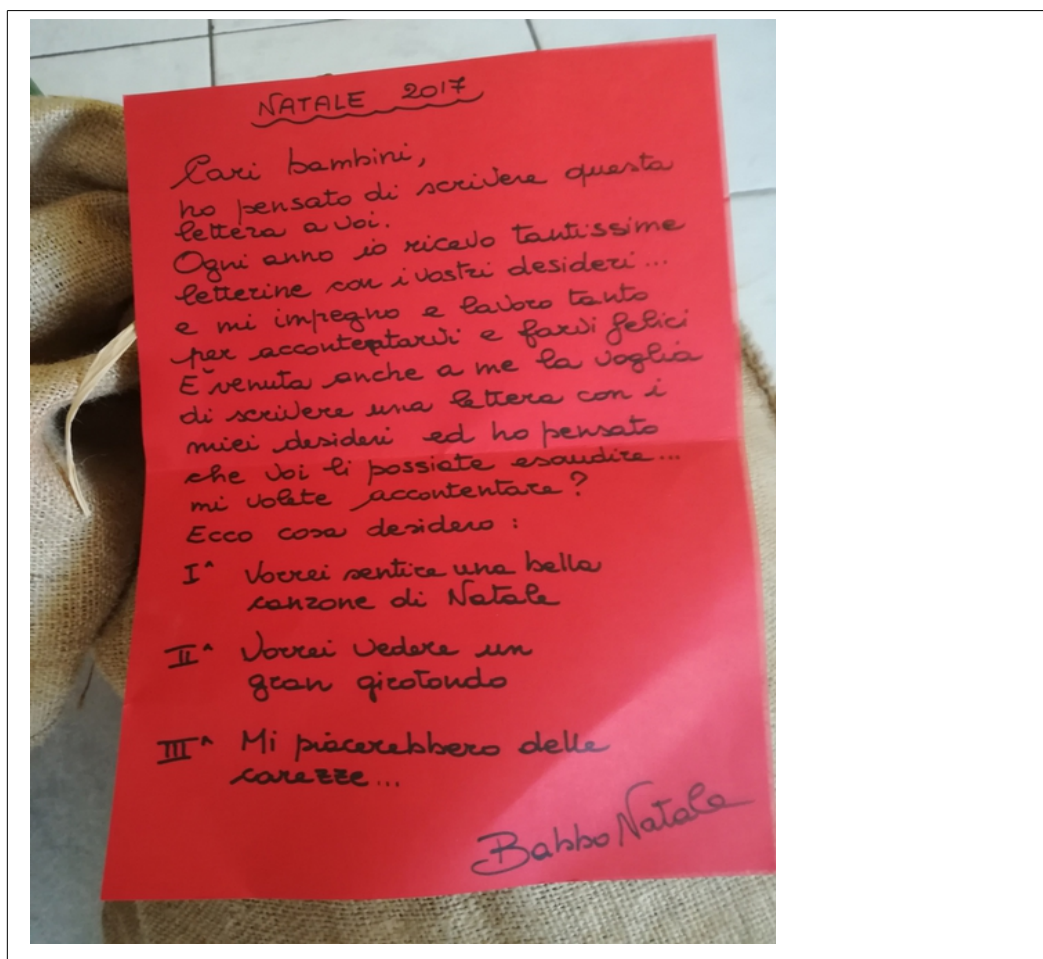 NATALE 2017
Cari bambini,
ho pensato di scrivere questa
lettera a voi.
Ogni anno io ricevo tantissime
letterine con i vostri desideri...
e mi impegno e lavoro tanto
per accontentarvi e farvi felici
È venuta anche a me la voglia
di scrivere una lettera con i
miei desideri ed ho pensato
che voi li possiate esaudire...
mi volete accontentare?
Ecco cosa desidero:
I^ Vorrei sentire una bella
canzone di Natale
II^ Vorrei vedere un
gran girotondo
III^ Mi piacerebbero delle
carezze...
Babbo Natale